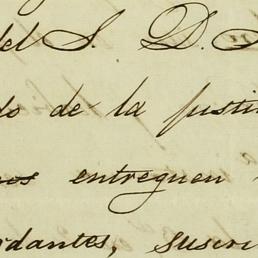 del S. D.
do de la justi
entreguen
dantes, suscri